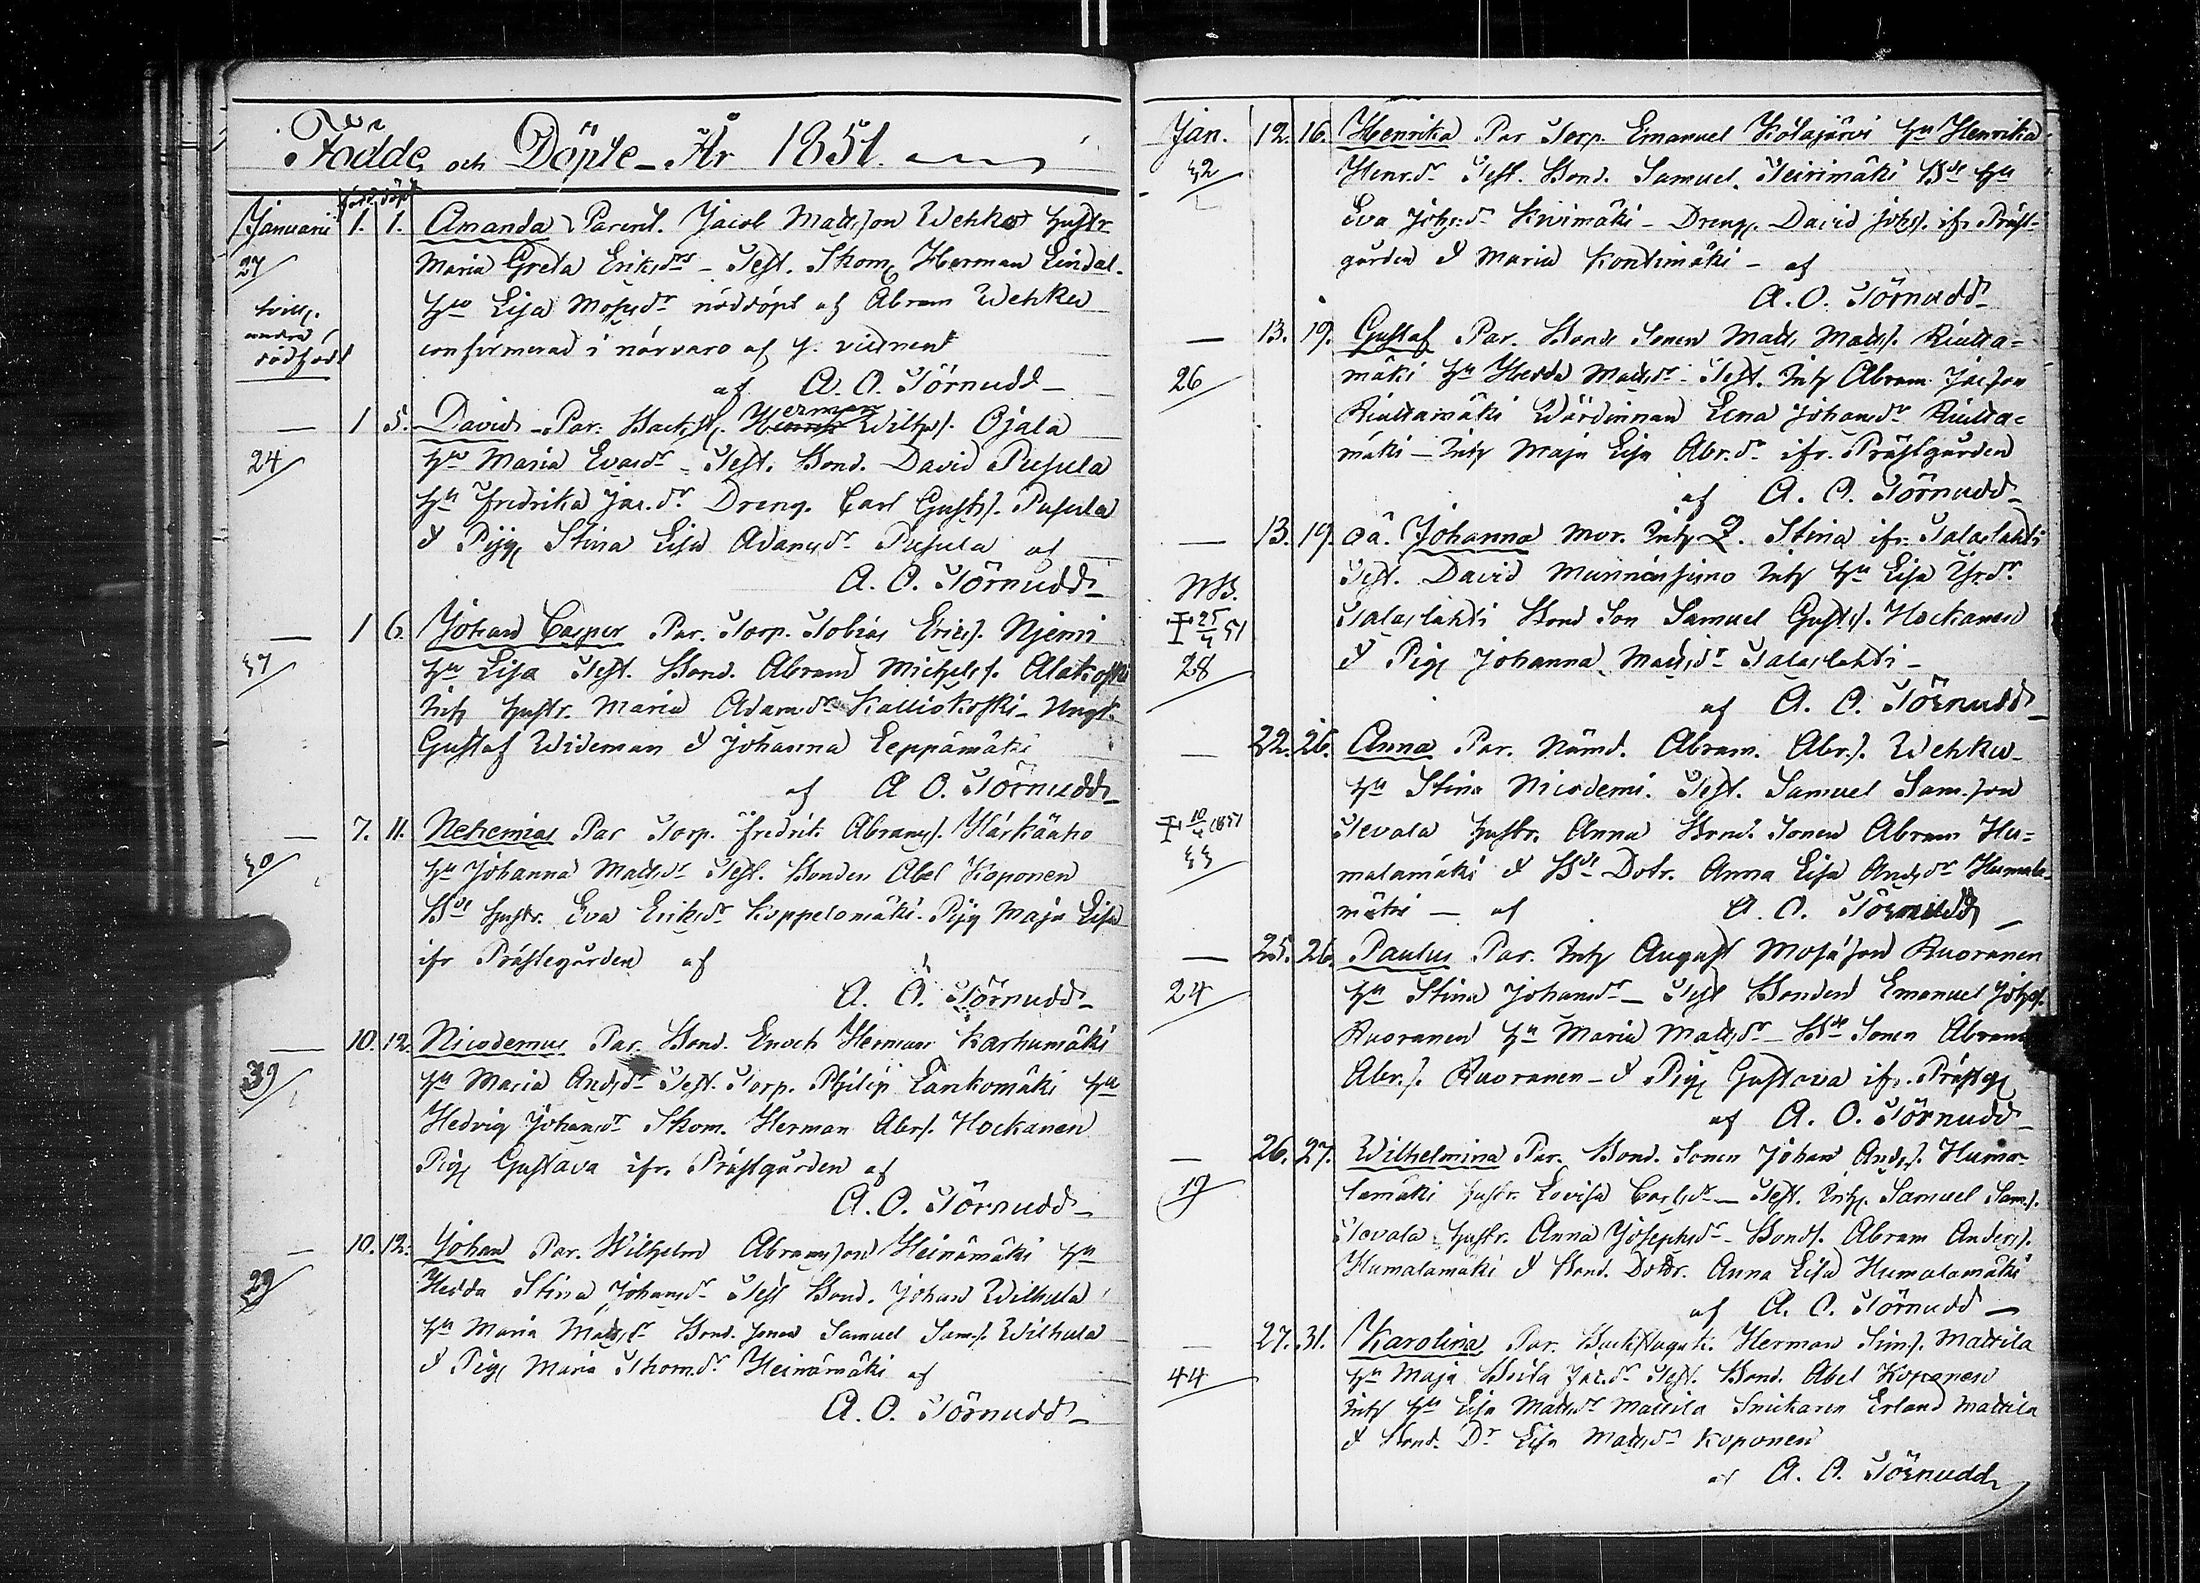 Födde och Döpte År 1851.
född döpt
Januarii 1. 1. Amanda Parent. Jacob Matts son Wehka hustr
27 Maria Greta Eriksdr – Test. Skom. Herman Lindal.
tvill. hu Lisa Mosisdr nöddöpt af Abram Wehka
andra confirmerad i närvaro af f. vittnen
dödfödt
af A. O. Törnudd
— 1 5. David – Par. Backst. Herman Wilh.s. Ojala
24 hu Maria Evasdr – Test. Bond. David Pusula
hu Fredrika Jac.dr Dreng. Carl Gust.s. Pusula
& Pig. Stina Lisa Adamsdr Pusula af
A. O. Törnudd
— 1 6. Johan Casper Par. Torp. Tobias Erics. Njemi
37 hu Lisa Test. Bond. Abram Michels. Alakoski
Inh hustr. Maria Adamsdr Kalliokoski – Ungk.
Gustaf Wideman & Johanna Leppämäki
af A. O. Törnudd
— 7. 11. Nehemias Par Torp. Fredrik Abrams. Härkäaho
30 hu Johanna Mattsdr Test. Bonden Abel Koponen
Bde hustr. Eva Eriksdr Koppelomäki. Pig Maja Lisa
ifr Prästegården af
A. O. Törnudd
— 10. 12. Nicodemus Par. Bond. Enoch Herman Karhumäki
39 hu Maria Andsdr Test. Torp. Philip Lankomäki hu
Hedvig Johansdr Skom. Herman Abr.s. Hockanen
Pig Gustava ifr. Prästgården af
A. O. Törnudd
— 10. 12. Johan Par. Wilhelm Abramsson Heinämäki hu
29 Hedda Stina Johansdr Test Bond. Johan Wilhula
hu Maria Mattsdr Bond. sonen Samuel Sam.s. Wilhula
& Pig Maria Thom.dr Heinämäki af
A. O. Törnudd
Jan. 12. 16. Henrika Par Torp. Emanuel Kolajärvi hu Henrika
32 Henr.dr Test. Bond. Samuel Teirimäki Bde hu
Eva Johs.dr Kivimäki – Dreng. David Johs. ifr Präst-
gården & Maria Kontimäki – af
A. O. Törnudd
— 13. 19. Gustaf Par. Bonde Sonen Matts Matts.s. Riutta-
26 mäki hu Hedda Mattsdr – Test. Inh Abram Jacson
Riuttamäki Wärdinnan Lena Johansdr Riutta-
mäki – Inh Maja Lisa Abr.dr ifr. Prästgården
af A. O. Törnudd
— 13. 19. oä. Johanna Mor. Inh Q. Stina ifr. Talaslahti
NB. Test. David Munninsuno Inh hu Lisa
25/4 51 Talaslahti Bond Son Samuel Gust.s. Hockanen
28 & Pig Johanna Mattsdr Talaslahti –
af A. O. Törnudd
— 22. 26. Anna Par. Nämd. Abram. Abr.s. Wehka
hu Stina Nicodemi. Test. Samuel Sam.son
10/4 1851 Tevala hustr. Anna Bond. Sonen Abram Hu-
33 malamäki & Bde Dotr. Anna Lisa Andsdr Humala-
mäki – af A. O. Törnudd
— 25. 26. Paulus Par. Inh August Mosisson Ruoranen
24 hu Stina Johansdr – Test Bonden Emanuel Johs.
Ruoranen hu Maria Mattsdr – Bde Sonen Abram
Abr.s. Ruoranen – & Pig Gustava ifr. Prästg
af A. O. Törnudd
— 26. 27. Wilhelmina Par. Bond. Sonen Johan Ands.s. Huma-
19 lamäki hustr. Lovisa Carlsdr – Test. Inh. Samuel Sam.s.
Tevala hustr. Anna Josephsdr – Bonds. Abram Anders.
Humalamäki & Bond. Dottr. Anna Lisa Humalamäki
af A. O. Törnudd
— 27. 31. Karolina Par. Backstugak. Herman Sim.s. Mattila
44 hu Maja Brita Jac.dr Test. Bond. Abel Koponen
Inh hu Lisa Mattsdr Mattila Snickaren Erland Mattila
& Bond. Dr Lisa Mattsdr Koponen
af A. O. Törnudd